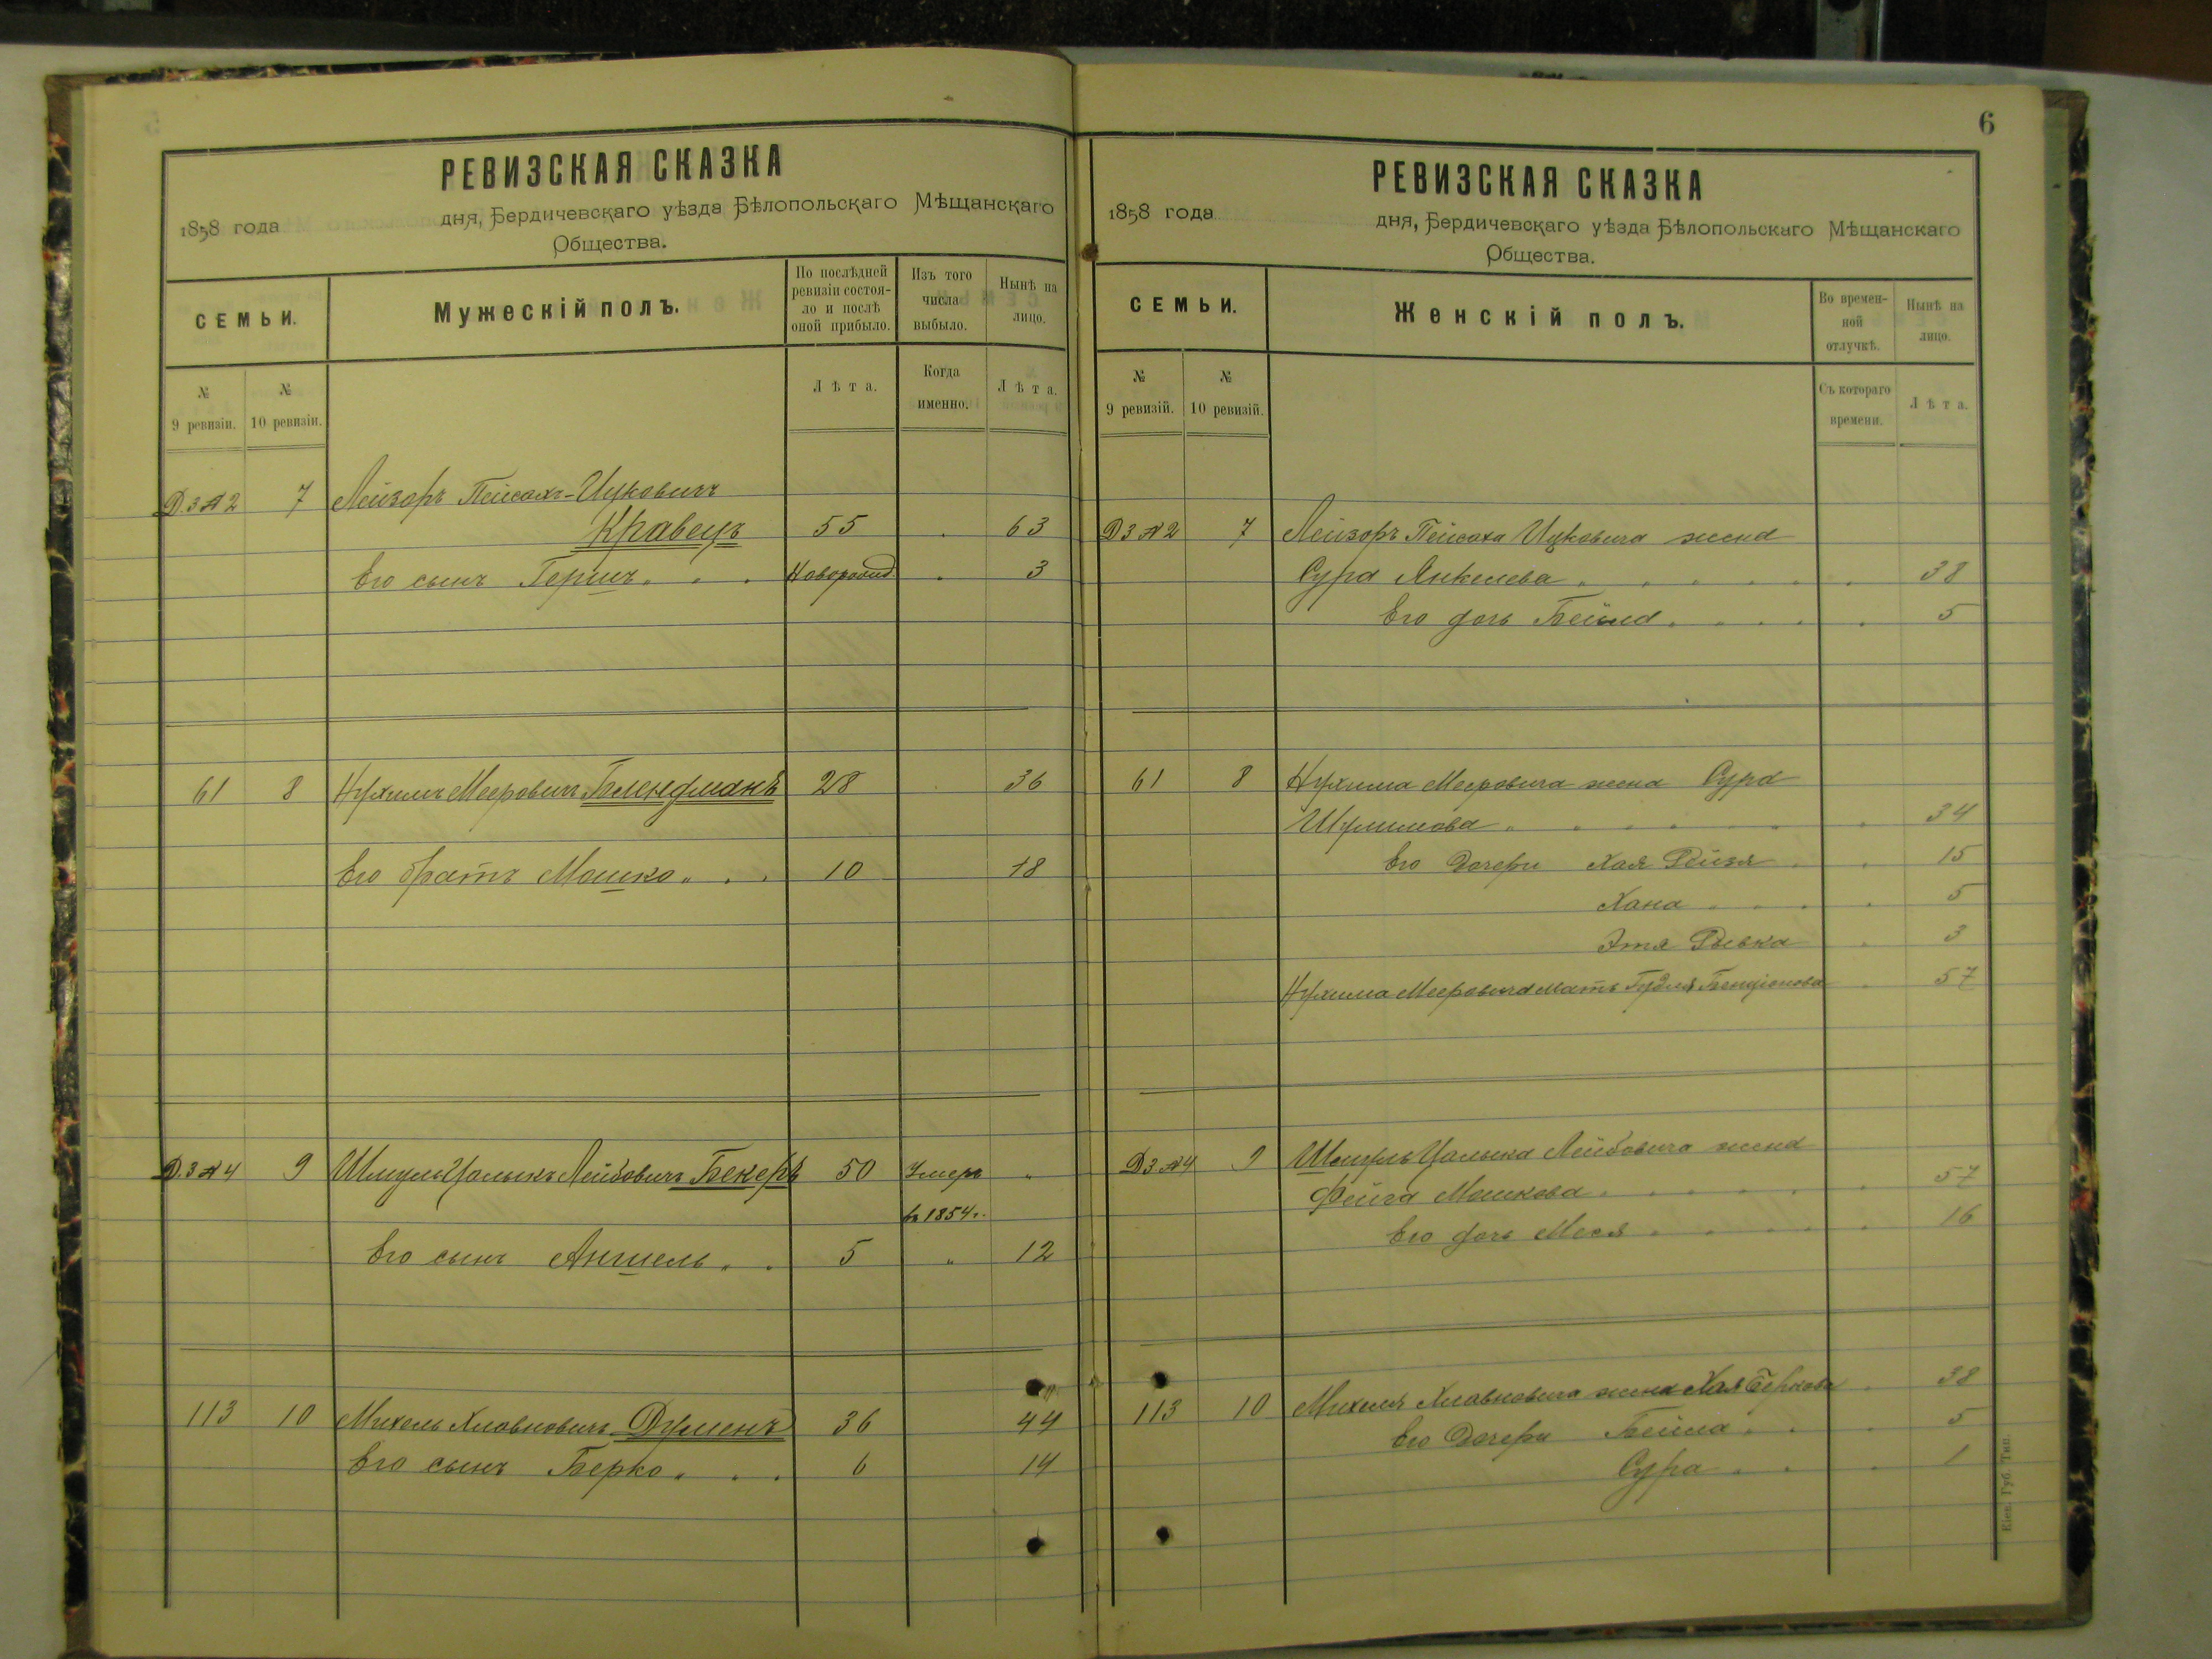 РЕВИЗСКАЯ СКАЗКА
1858 года дня, Бердичевскаго уѣзда Бѣлопольскаго Мѣщанскаго
Общества.
СЕМЬИ.
Мужескій полъ.
По послѣдней ревизіи состояло и послѣ оной прибыло.
Изъ того числа выбыло.
Нынѣ на лицо.
№ 9 ревизіи.
№ 10 ревизіи.
Лѣта.
Когда именно.
Лѣта.
Д.3 №2 7 Лейзоръ Пейсахъ-Ицковичъ
Кравецъ 55 63
Его сынъ Гершъ Новорожд. 3
61 8 Нухимъ Мееровичъ Блендманъ 28 36
Его братъ Мошко 10 18
Д.3 №4 9 Шмуль Цалыкъ Лейбовичъ Бекеръ 50 Умеръ "
въ 1854 г.
Его сынъ Аншель 5 " 12
113 10 Михель Хлавновичъ Думенъ 36 44
Его сынъ Берко 6 14
6
РЕВИЗСКАЯ СКАЗКА
1858 года дня, Бердичевскаго уѣзда Бѣлопольскаго Мѣщанскаго
Общества.
СЕМЬИ.
Женскій полъ.
Во временной отлучкѣ.
Нынѣ на лицо.
№ 9 ревизій.
№ 10 ревизій.
Съ котораго времени.
Лѣта.
Д3 №2 7 Лейзоръ Пейсаха Ицковича жена
Сура Янкелева 38
Его дочь Бейла 5
61 8 Нухима Мееровича жена Сура
Шулимова 34
Его Дочери Хая Рейзя 15
Хана 5
Этя Рывка 3
Нухима Мееровича мать Гудля Бенціонова 57
Д3 №4 9 Шмуль Цалыка Лейбовича жена
Фейга Мошкова 57
Его дочь Меся 16
113 10 Михеля Хлавновича жена Хая Беркова 38
Его Дочери Бейла 5
Сура 1
Кіев. Губ. Тип.